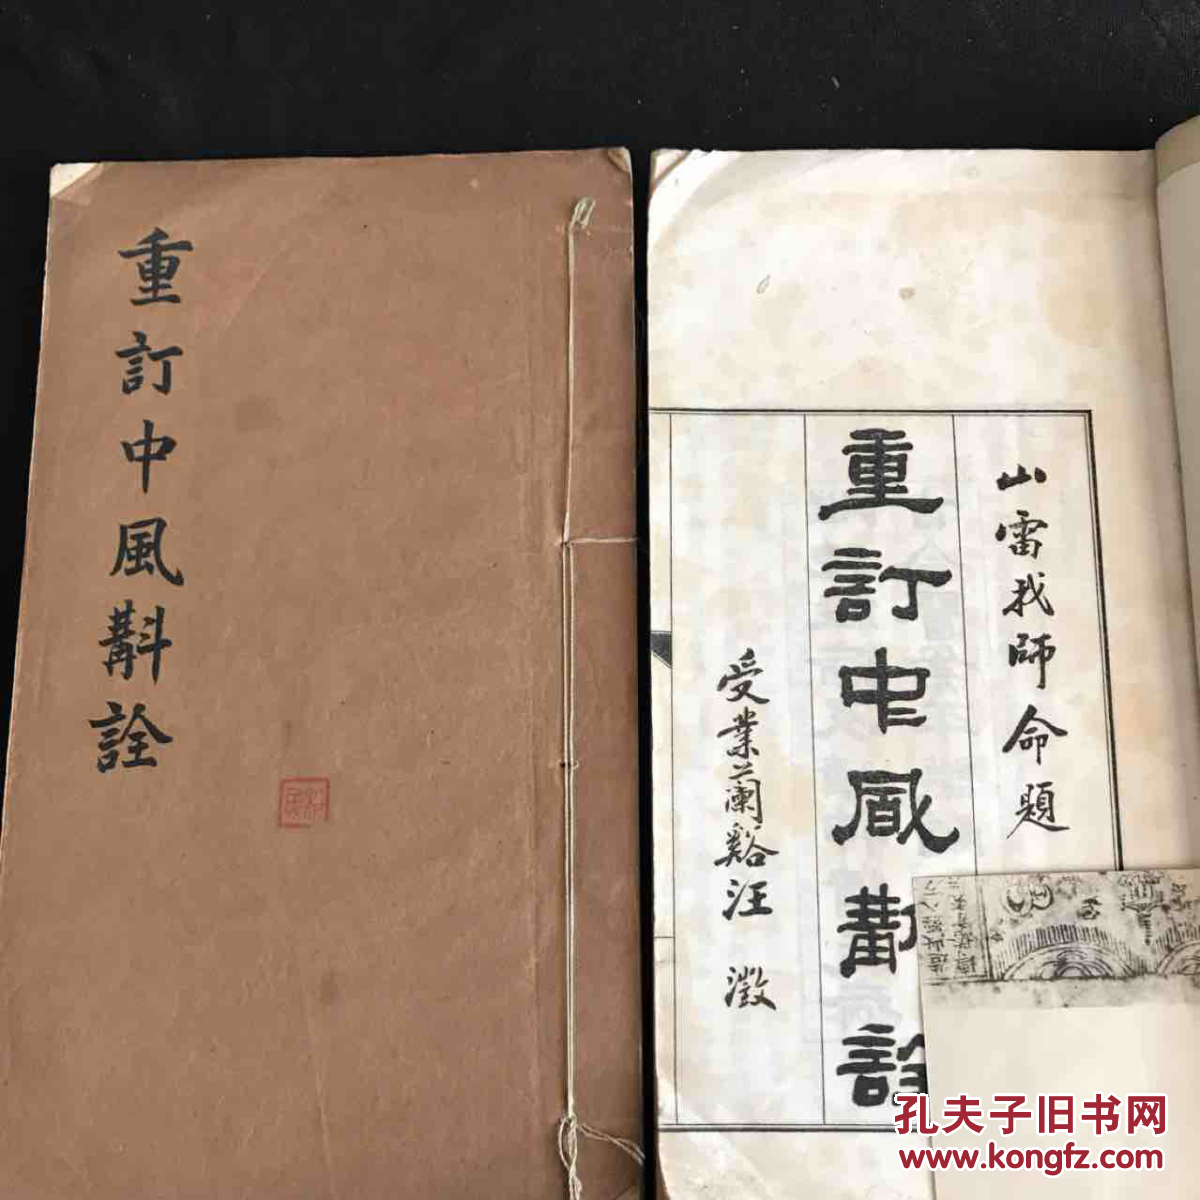 重訂中風斠詮
山雷我師命題
重訂中風斠詮
受業蘭谿汪澂
孔夫子旧书网
www.kongfz.com